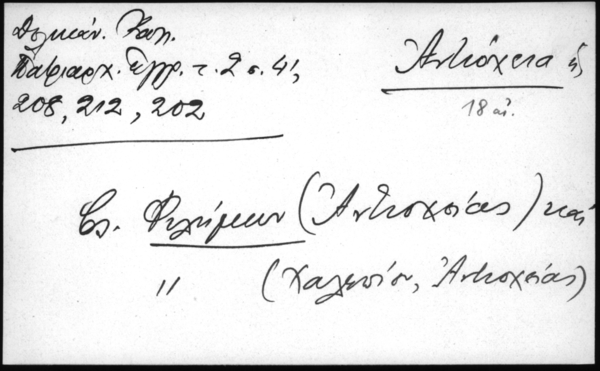 Δελικάν. Καλ.
Πατριαρχ. Έγγρ. τ. 2 σ. 41,
208, 212, 202
Ἀντιόχεια ἡ
18 αἰ.
Βλ. Φιλήμων (Ἀντιοχείας) καί
〃 (Χαλεπίου, Ἀντιοχείας)